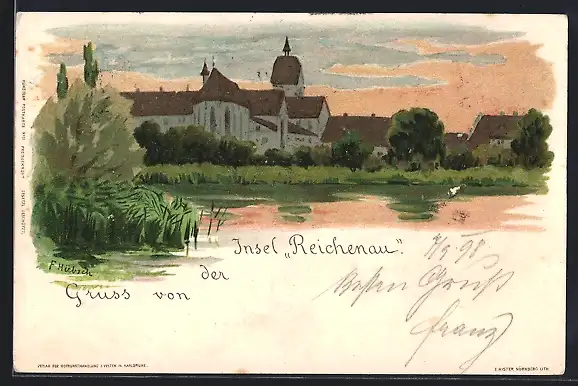 F. Hübsch
Gruss von der Insel „Reichenau“.
7/9 98
Besten Gruß
Franz
VERLAG DER HOFKUNSTHANDLUNG J. VELTEN IN KARLSRUHE.
E. NISTER NÜRNBERG LITH.